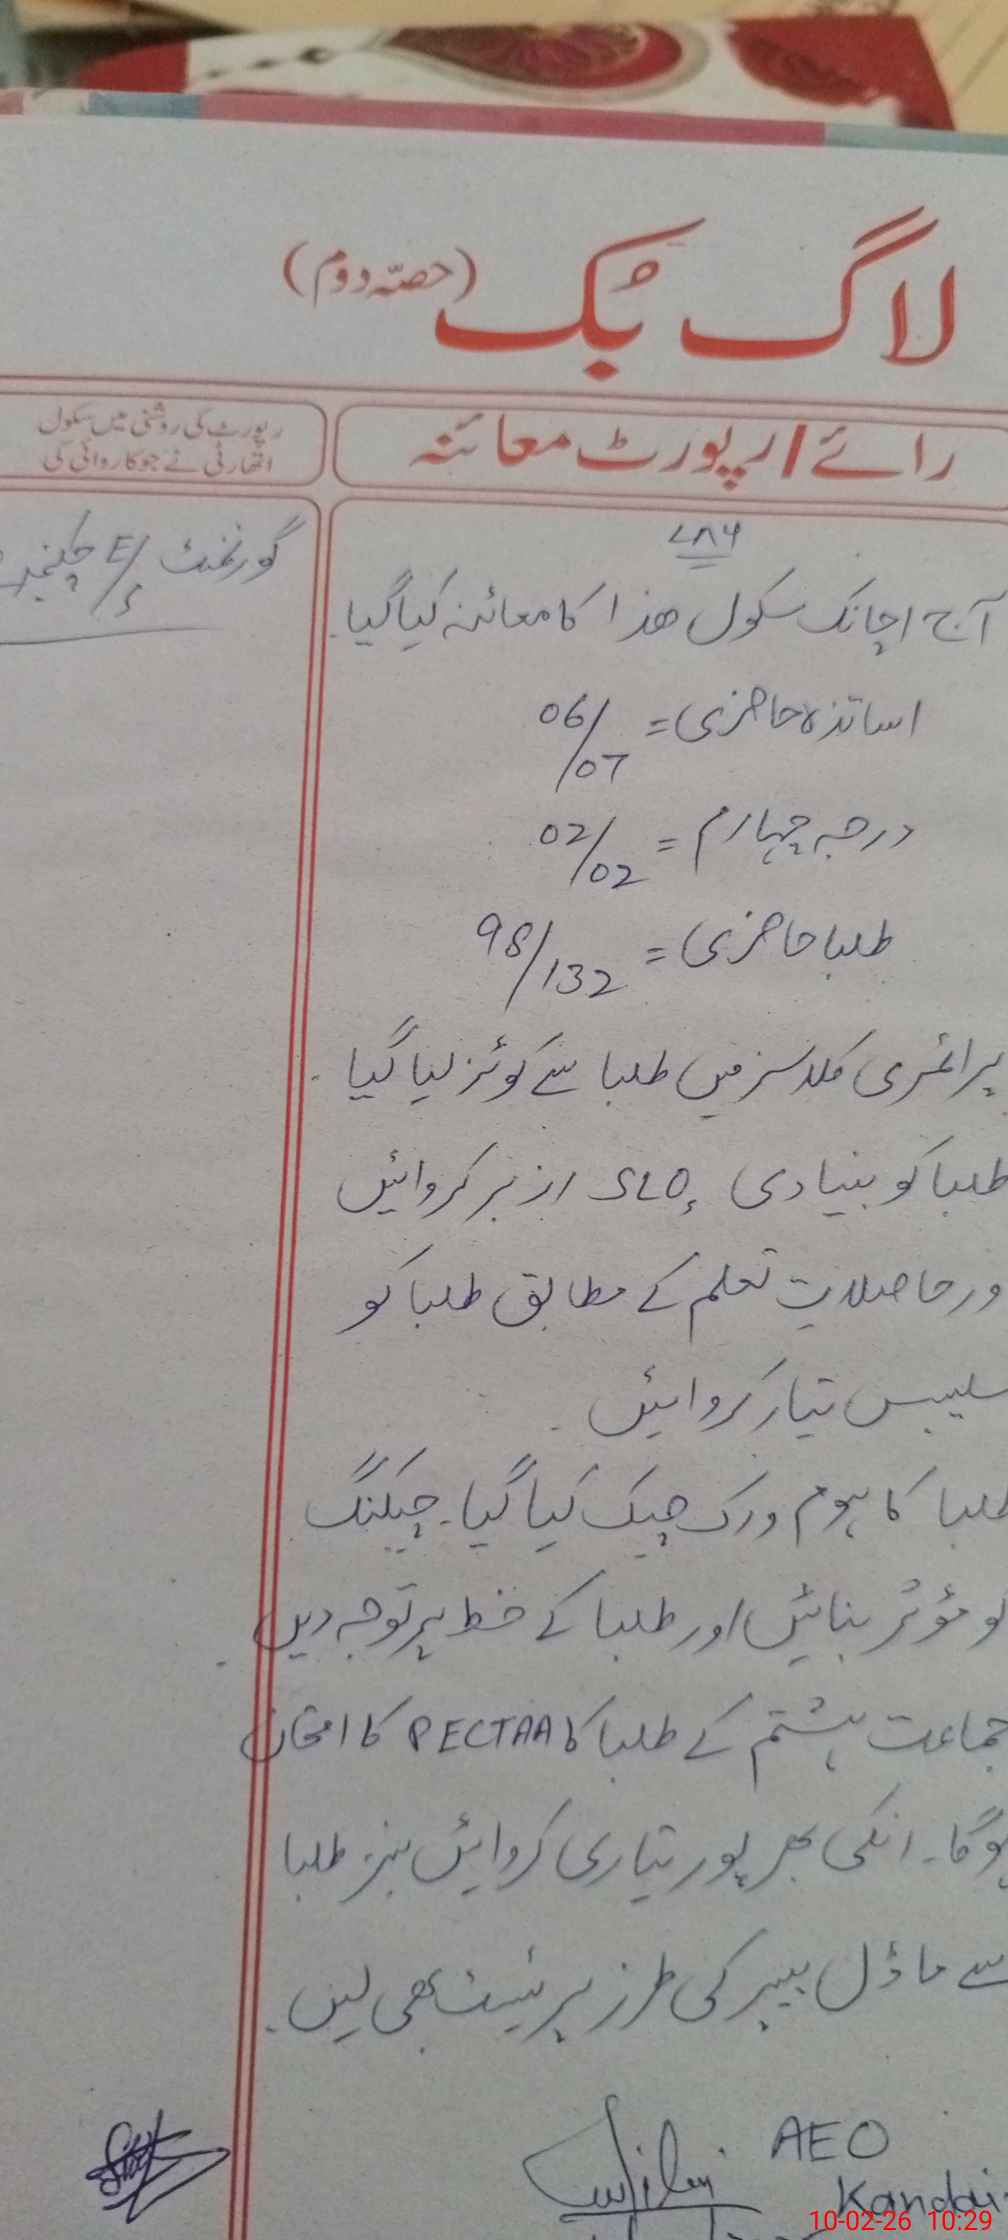 لاگ بُک (حصّہ دوم)
رائے / رپورٹ معائنہ
رپورٹ کی روشنی میں سکول
اتھارٹی نے جو کاروائی کی
٧٨٦
گورنمنٹ E/S
آج اچانک سکول ھذا کا معائنہ کیا گیا۔
اساتذہ حاضری = 06/07
درجہ چہارم = 02/02
طلبا حاضری = 98/132
پرائمری کلاسز میں طلبا سے کوئز لیا گیا۔
طلبا کو بنیادی SLO, ازبر کروائیں
ور حاصلاتِ تعلم کے مطابق طلبا کو
سلیبس تیار کروائیں۔
طلبا کا ہوم ورک چیک کیا گیا۔ چیکنگ
کو مؤثر بنائیں اور طلبا کے خط پر توجہ دیں۔
جماعت ہشتم کے طلبا کا PECTAA کا امتحان
ہوگا۔ انکی بھرپور تیاری کروائیں نیز طلبا
سے ماڈل پیپر کی طرز پر ٹیسٹ بھی لیں۔
AEO
10-02-26 10:29